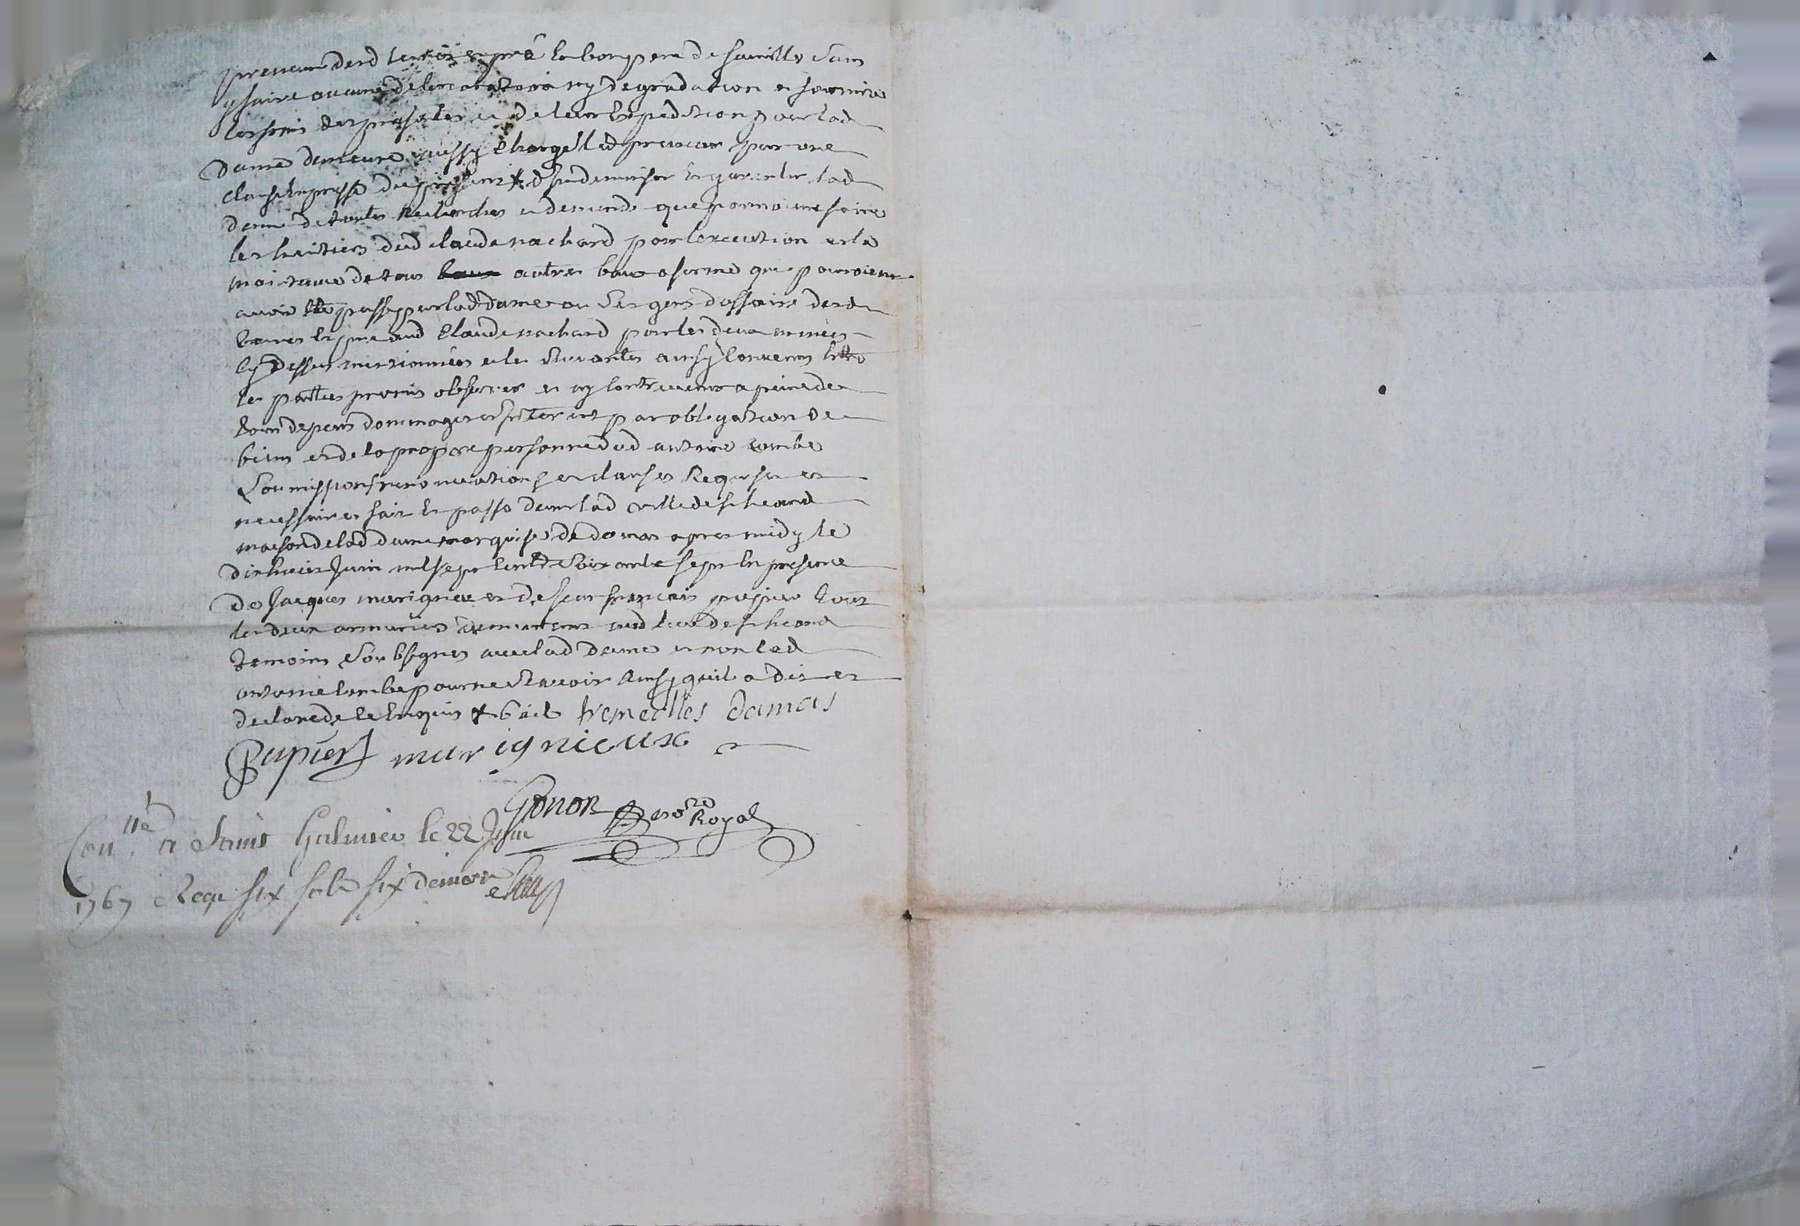 preneur desd terres et pré en bon pere de famille sans
y faire aucune deterioration ny degradation et fournira
les frais des presentes et de leur expedition pour lad
dame demeure aussy chargé led preneur par une
clause expresse des presentes d'indemniser et garentir lad
dame de toutes recherches et demande que pourroient faire
les heritiers dud claude nachard pour l'execution et la
de tous autres baux a ferme que pourroient
avoir été passé par lad dame ou ses gens d'affaire desd
terres et pré aud Claude nachard pour les deux années
cy dessus mentionnées et les suivantes ainsy convenu entre
les parties promis observer et n'y contrevenir a peine de
tous depens dommages et interest par obligation de
biens et de la propre personne dud antoine combe
soumissions renonciations et clauses requises et
necessaires fait et passé dans lad ville de st heand
maison de lad dame marquise de damas apres midy le
dixhuit Juin mil sept cent soixante sept en presence
de Jacques marignieux et de sieur françois papier tous
les deux armuriers demeurants aud lieu de st heand
temoins soubsignes avec lad dame et non led
antoine combe pour ne sçavoir ainsy qu'il a dit et
declaré de ce enquis damas
Papier marignieux
Gonon no.re Royal
Con.lle a Saint Galmier le 22 Juin
1767 Reçu six sols six deniers